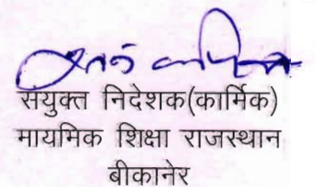 सयुक्त निदेशक(कार्मिक)
मायमिक शिक्षा राजस्थान
बीकानेर